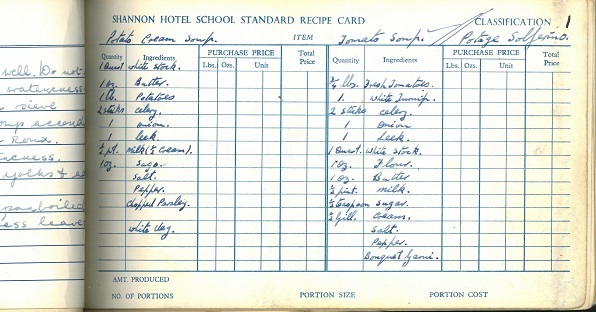 well. Do not
wateriness
sieve
Roux.
yolks &
parboiled
leave
SHANNON HOTEL SCHOOL STANDARD RECIPE CARD CLASSIFICATION 1
Potato Cream Soup. ITEM Tomato Soup. / Potage Solferino.
Quantity Ingredients PURCHASE PRICE Total Price Quantity Ingredients PURCHASE PRICE Total Price
Lbs. Ozs. Unit Lbs. Ozs. Unit
1 Quart white stock.
1 oz. Butter.
1 lb. Potatoes
2 sticks celery.
1 onion.
1 leek.
½ pt. milk (½ cream).
1 oz. Sago.
Salt.
Pepper.
chopped Parsley.
white
¾ lbs. Fresh Tomatoes.
1. white Turnip.
2 sticks celery.
1 Onion
1 Leek.
1 Quart. white stock.
1 oz. Flour.
1 oz. Butter
½ pint. milk.
½ teaspoon sugar.
½ gill. cream.
Salt.
Pepper.
Bouquet Garni.
AMT. PRODUCED
NO. OF PORTIONS PORTION SIZE PORTION COST